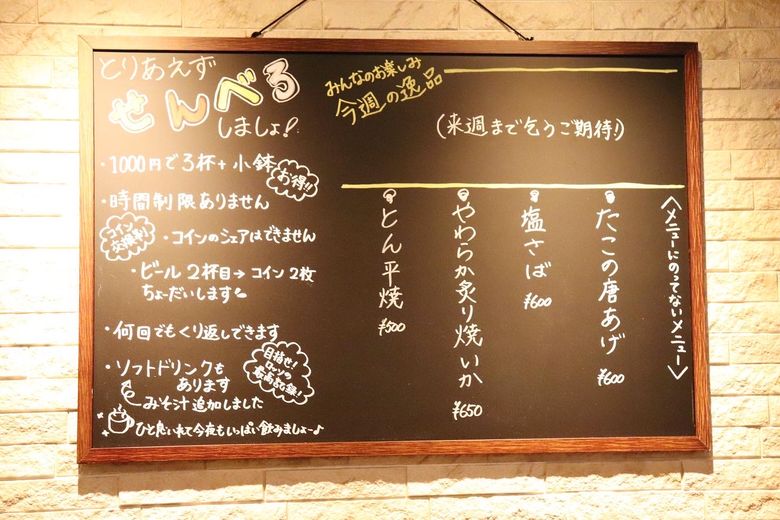 とりあえず
せんべろ
しましょ!
・1000円で3杯+小鉢
お得!!
・時間制限ありません
コイン
交換制
・コインのシェアはできません
・ビール2杯目→コイン2枚
ちょーだいします
・何回でもくり返しできます
・ソフトドリンクも
あります
目指せ!
最高記録!
みそ汁追加しました
ひと息いれて今夜もいっぱい飲みましょ〜♪
みんなのお楽しみ
今週の逸品
(来週まで乞うご期待!)
<メニューにのってないメニュー>
たこの唐あげ
¥600
塩さば
¥600
やわらか炙り焼いか
¥650
とん平焼
¥500